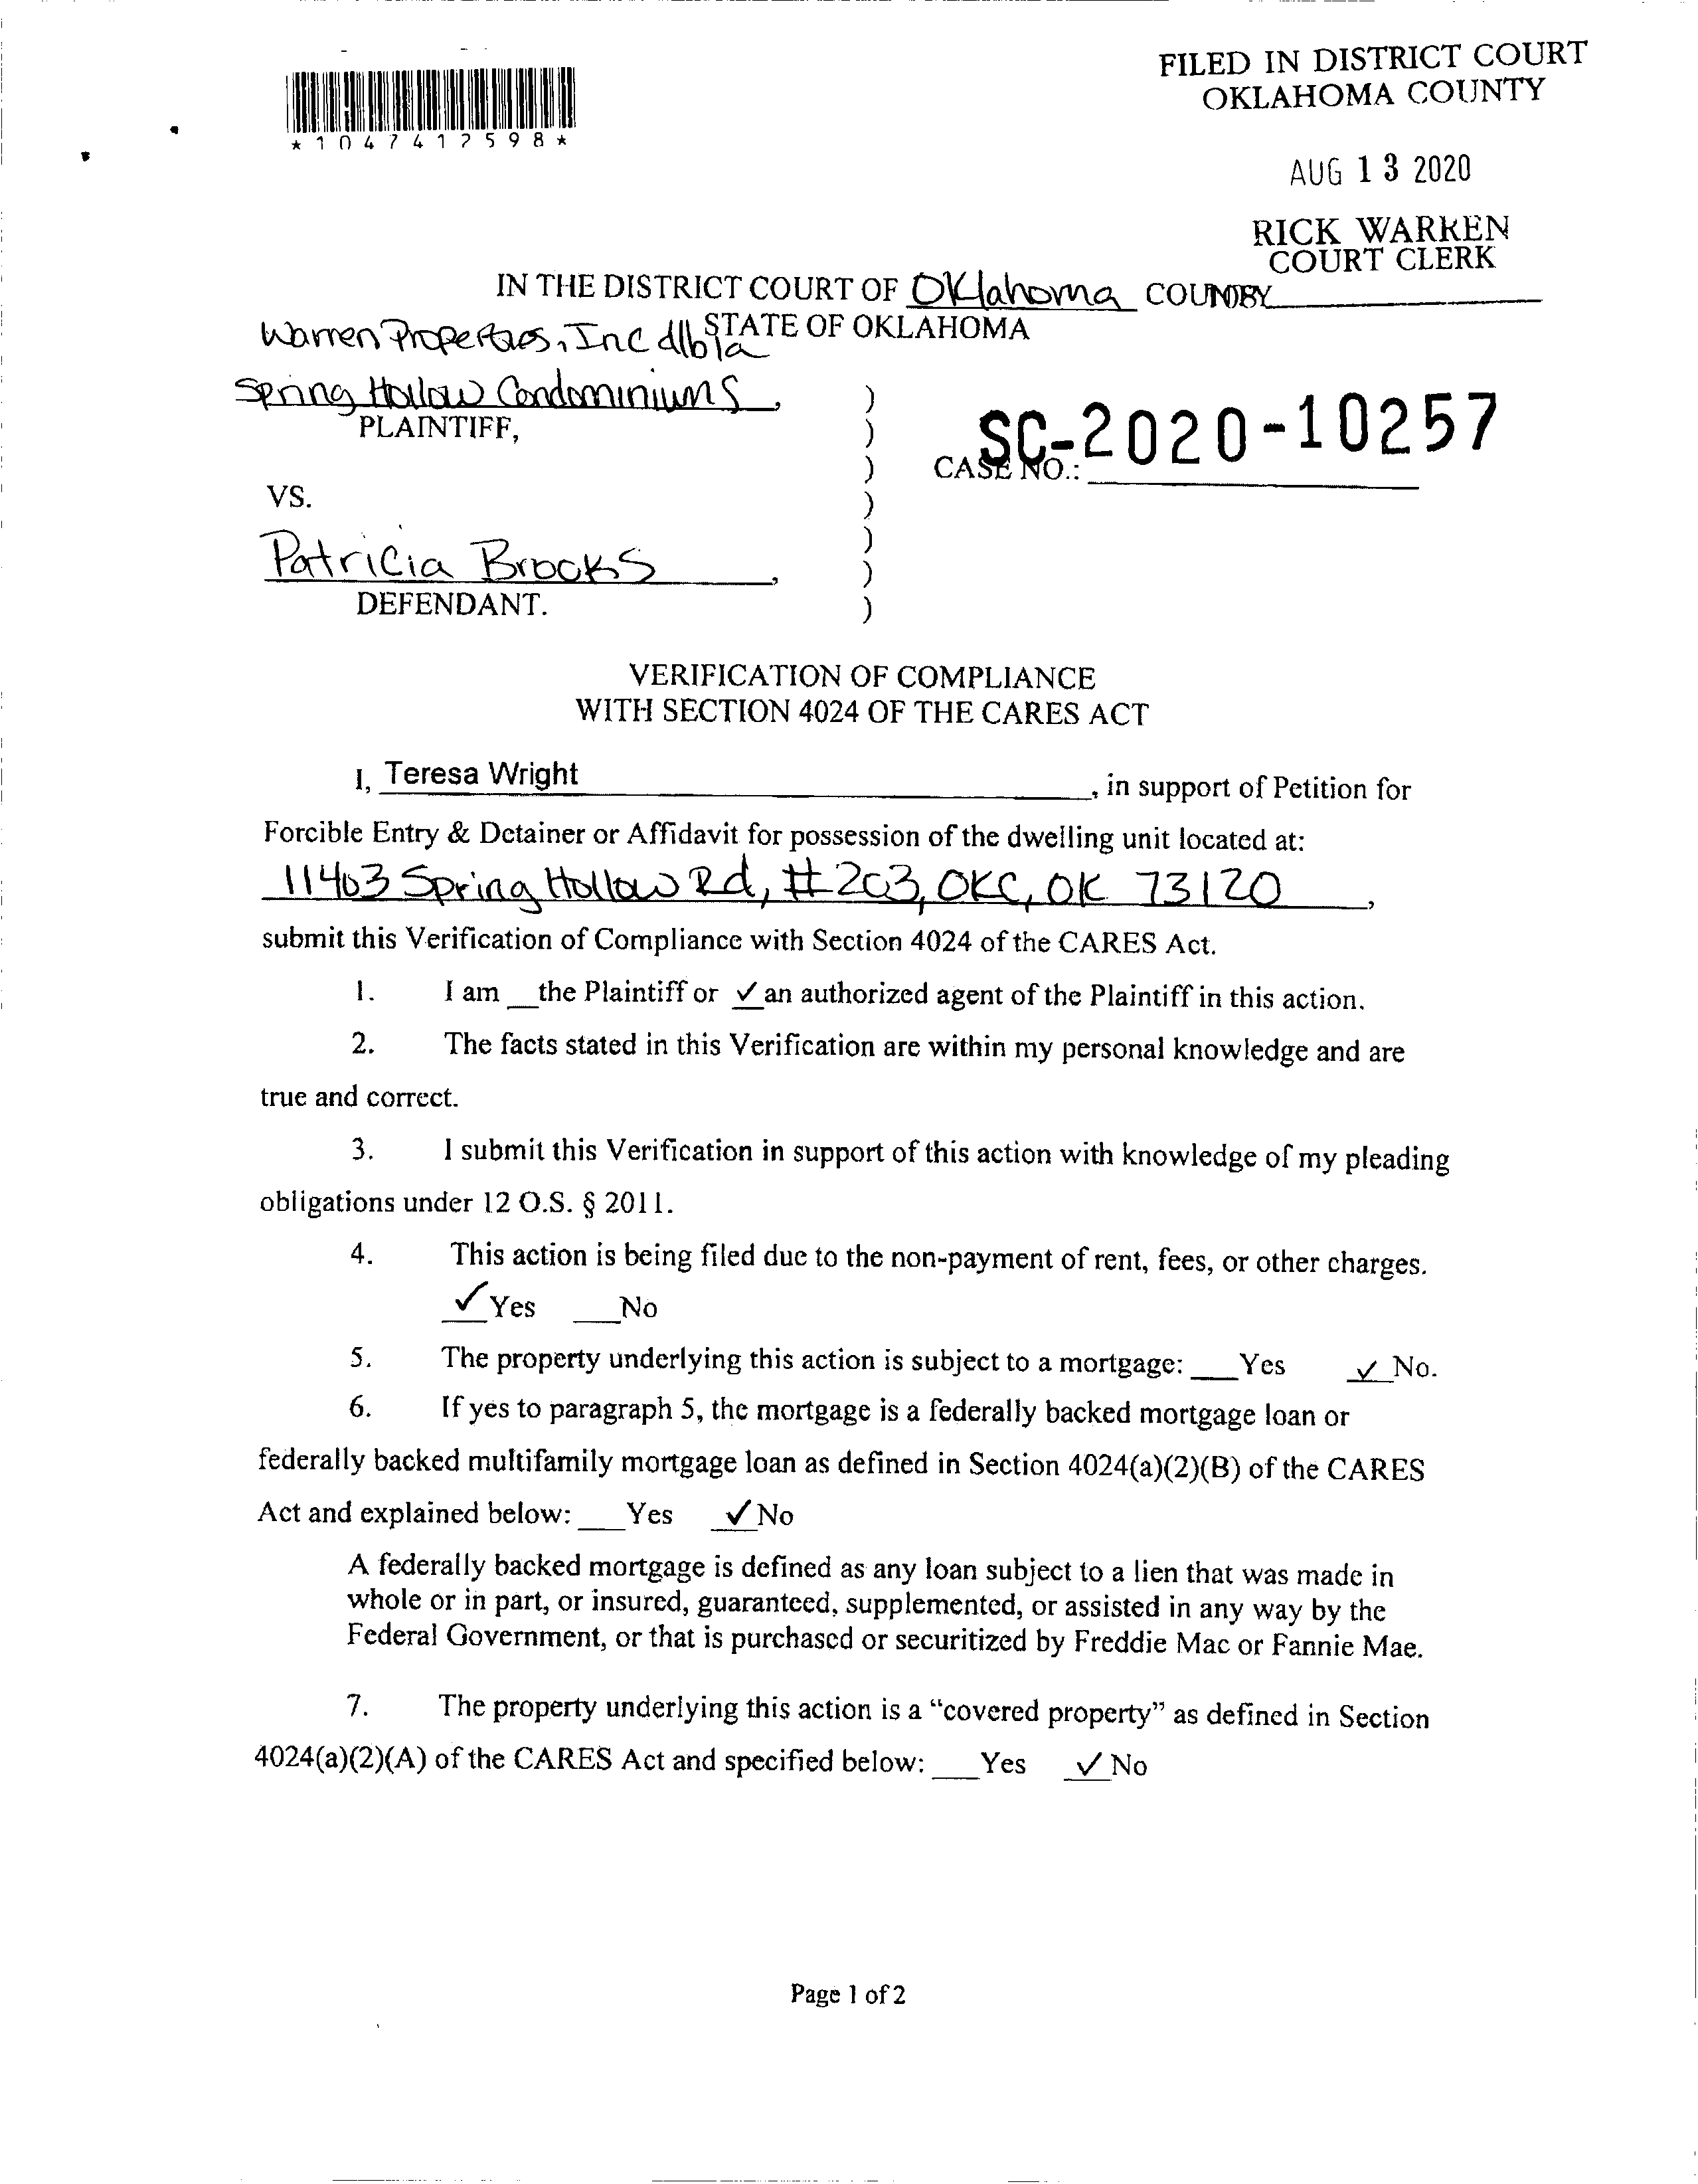 FILED IN DISTRICT COURT
OKLAHOMA COUNTY
*1047412598*
AUG 13 2020
RICK WARREN
COURT CLERK
IN THE DISTRICT COURT OF Oklahoma COUNTY
STATE OF OKLAHOMA
Warren Properties, Inc d/b/a
Spring Hollow Condominiums,
PLAINTIFF,
SC-2020-10257
CASE NO.:
VS.
Patricia Brooks,
DEFENDANT.
)
)
)
)
)
)
)
VERIFICATION OF COMPLIANCE
WITH SECTION 4024 OF THE CARES ACT
I, Teresa Wright, in support of Petition for
Forcible Entry & Detainer or Affidavit for possession of the dwelling unit located at:
11403 Spring Hollow Rd, #203, OKC, OK 73120,
submit this Verification of Compliance with Section 4024 of the CARES Act.
1. I am __the Plaintiff or ✓ an authorized agent of the Plaintiff in this action.
2. The facts stated in this Verification are within my personal knowledge and are
true and correct.
3. I submit this Verification in support of this action with knowledge of my pleading
obligations under 12 O.S. § 2011.
4. This action is being filed due to the non-payment of rent, fees, or other charges.
✓ Yes ___No
5. The property underlying this action is subject to a mortgage: ___Yes ✓ No.
6. If yes to paragraph 5, the mortgage is a federally backed mortgage loan or
federally backed multifamily mortgage loan as defined in Section 4024(a)(2)(B) of the CARES
Act and explained below: ___Yes ✓ No
A federally backed mortgage is defined as any loan subject to a lien that was made in
whole or in part, or insured, guaranteed, supplemented, or assisted in any way by the
Federal Government, or that is purchased or securitized by Freddie Mac or Fannie Mae.
7. The property underlying this action is a “covered property” as defined in Section
4024(a)(2)(A) of the CARES Act and specified below: ___Yes ✓ No
Page 1 of 2